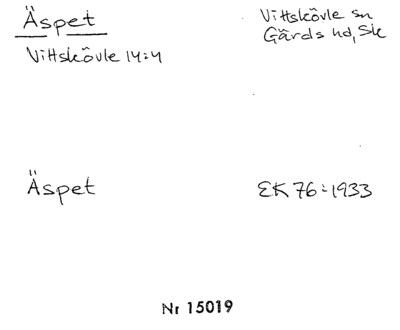 Äspet
Vittskövle sn
Gärds hd, Sk
Vittskövle 14:4
Äspet
EK 76:1933
Nr 15019